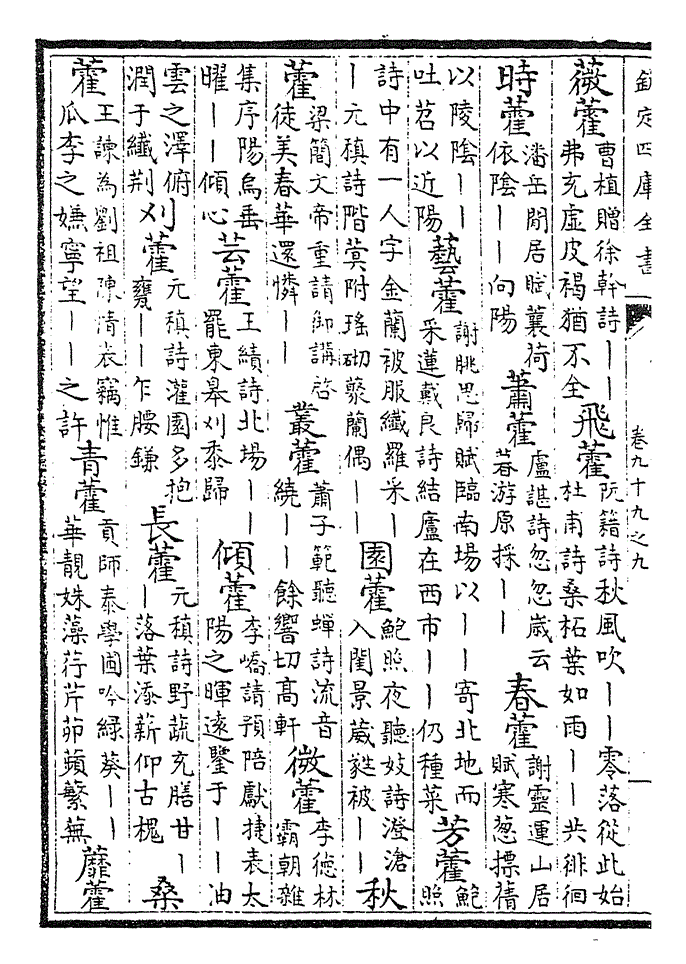 欽定四庫全書
卷九十九之九
薇藿 曹植贈徐幹詩丨丨弗充虛皮褐猶不全 飛藿 阮籍詩秋風吹丨丨零落從此始杜甫詩桑柘葉如雨丨丨共徘徊
時藿 潘岳閒居賦蘘荷依陰丨丨向陽 蕭藿 盧諶詩忽忽歲云暮游原採丨丨 春藿 謝靈運山居賦寒葱摽蒨
以陵陰丨丨吐苕以近陽 藝藿 謝朓思歸賦臨南場以丨丨寄北地而采蓮戴良詩結廬在西市丨丨仍種菜 芳藿 鮑照
詩中有一人字金蘭被服纖羅采丨丨元稹詩階蓂附瑤砌藂蘭偶丨丨 園藿 鮑照夜聽妓詩澄滄入閨景葳蕤被丨丨 秋
藿 梁簡文帝重請御講啓徒美春華還憐丨丨 叢藿 蕭子範聽蟬詩流音繞丨丨餘響切高軒 微藿 李德林霸朝雜
集序陽烏垂曜丨丨傾心 芸藿 王績詩北場丨丨罷東皋刈黍歸 傾藿 李嶠請預陪獻捷表太陽之暉遠鑒于丨丨油
雲之澤俯潤于纖荆 刈藿 元稹詩灌園多抱甕丨丨乍腰鎌 長藿 元稹詩野蔬充膳甘丨丨落葉添薪仰古槐 桑
藿 王諫為劉祖陳情表竊惟瓜李之嫌寧望丨丨之許 青藿 貢師泰學圃吟綠葵丨丨華靚姝藻荇芹茆蘋蘩蕪 蘼藿